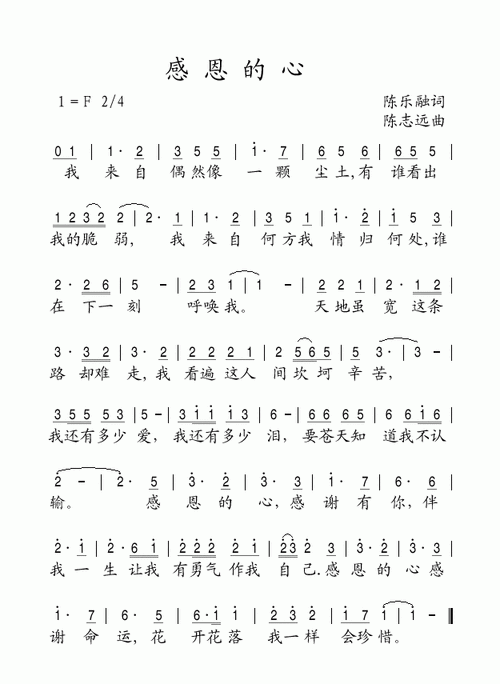 感恩的心
1=F 2/4 陈乐融词
陈志远曲
01 | 1· 2 | 3 5 5 | 1· 7 | 6 5 6 | 6 5 5 |
我 来自 偶然像 一颗 尘土,有 谁看出
1 2 3 2 2 | 2· 1 | 1· 2 | 3 5 1 | 1· 6 | 1 5 3 |
我的脆弱, 我 来自 何方我 情归 何处,谁
2· 2 6 | 5 - | 2 3 1 | 1 - | 2 2 1 | 2· 1 2 |
在 下一刻 呼唤我。 天地虽 宽 这条
3· 3 2 | 3· 3 | 2 2 2 1 | 2 5 6 5 | 3· | 3 - |
路 却难 走,我 看遍这人 间坎坷 辛苦,
3 5 5 5 3 | 5 - | 3 1 1 1 3 | 6 - | 6 6 6 5 | 6 6 1 6 |
我还有多少 爱, 我还有多少 泪, 要苍天知 道我不认
2 - | 2· 5 | 3· 2 | 3· 3 | 1· 7 | 6· 6 |
输。 感 恩的 心,感 谢有 你,伴
2· 1 | 2· 6 1 | 2 2 2 2 1 | 2 3 2 3 | 3· 2 | 3· 3 |
我一 生让我 有勇气作我 自己.感 恩的 心感
1· 7 | 6· 5 | 6· 1 1 | 2 3 2 | 2· 1 | 1 - ‖
谢命 运,花 开花落 我一样 会珍惜。